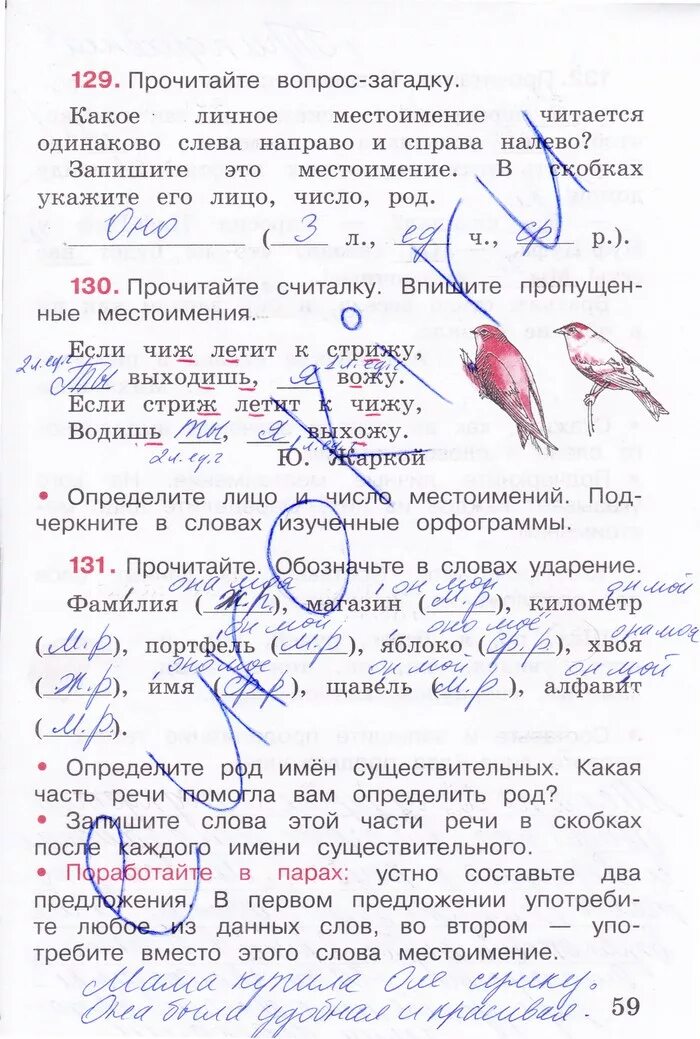 129. Прочитайте вопрос-загадку.
Какое личное местоимение читается
одинаково слева направо и справа налево?
Запишите это местоимение. В скобках
укажите его лицо, число, род.
Оно ( 3 л., ед ч., ср р.).
130. Прочитайте считалку. Впишите пропущен-
ные местоимения.
Если чиж летит к стрижу,
2л.ед.ч 1л.ед.ч
Ты выходишь, я вожу.
Если стриж летит к чижу,
Водишь ты, я выхожу.
2л.ед.ч 1л.ед.ч
Ю. Жаркой
• Определите лицо и число местоимений. Под-
черкните в словах изученные орфограммы.
131. Прочитайте. Обозначьте в словах ударение.
она моя он мой он мой
Фамилия (ж.р), магазин (м.р), километр
он мой оно моё она моя
(м.р), портфель (м.р), яблоко (ср.р), хвоя
оно мое он мой он мой
(ж.р), имя (ср.р), щавель (м.р), алфавит
(м.р).
• Определите род имён существительных. Какая
часть речи помогла вам определить род?
• Запишите слова этой части речи в скобках
после каждого имени существительного.
• Поработайте в парах: устно составьте два
предложения. В первом предложении употреби-
те любое из данных слов, во втором — упо-
требите вместо этого слова местоимение.
Мама купила Оле сумку.
Она была удобная и красивая.
59